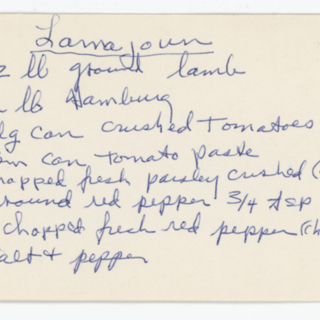 Lamajoun
2 lb ground lamb
lb Hamburg
lg can crushed Tomatoes
sm can tomato paste
chopped fresh parsley crushed
ground red pepper 3/4 tsp
chopped fresh red pepper (ch
salt & pepper